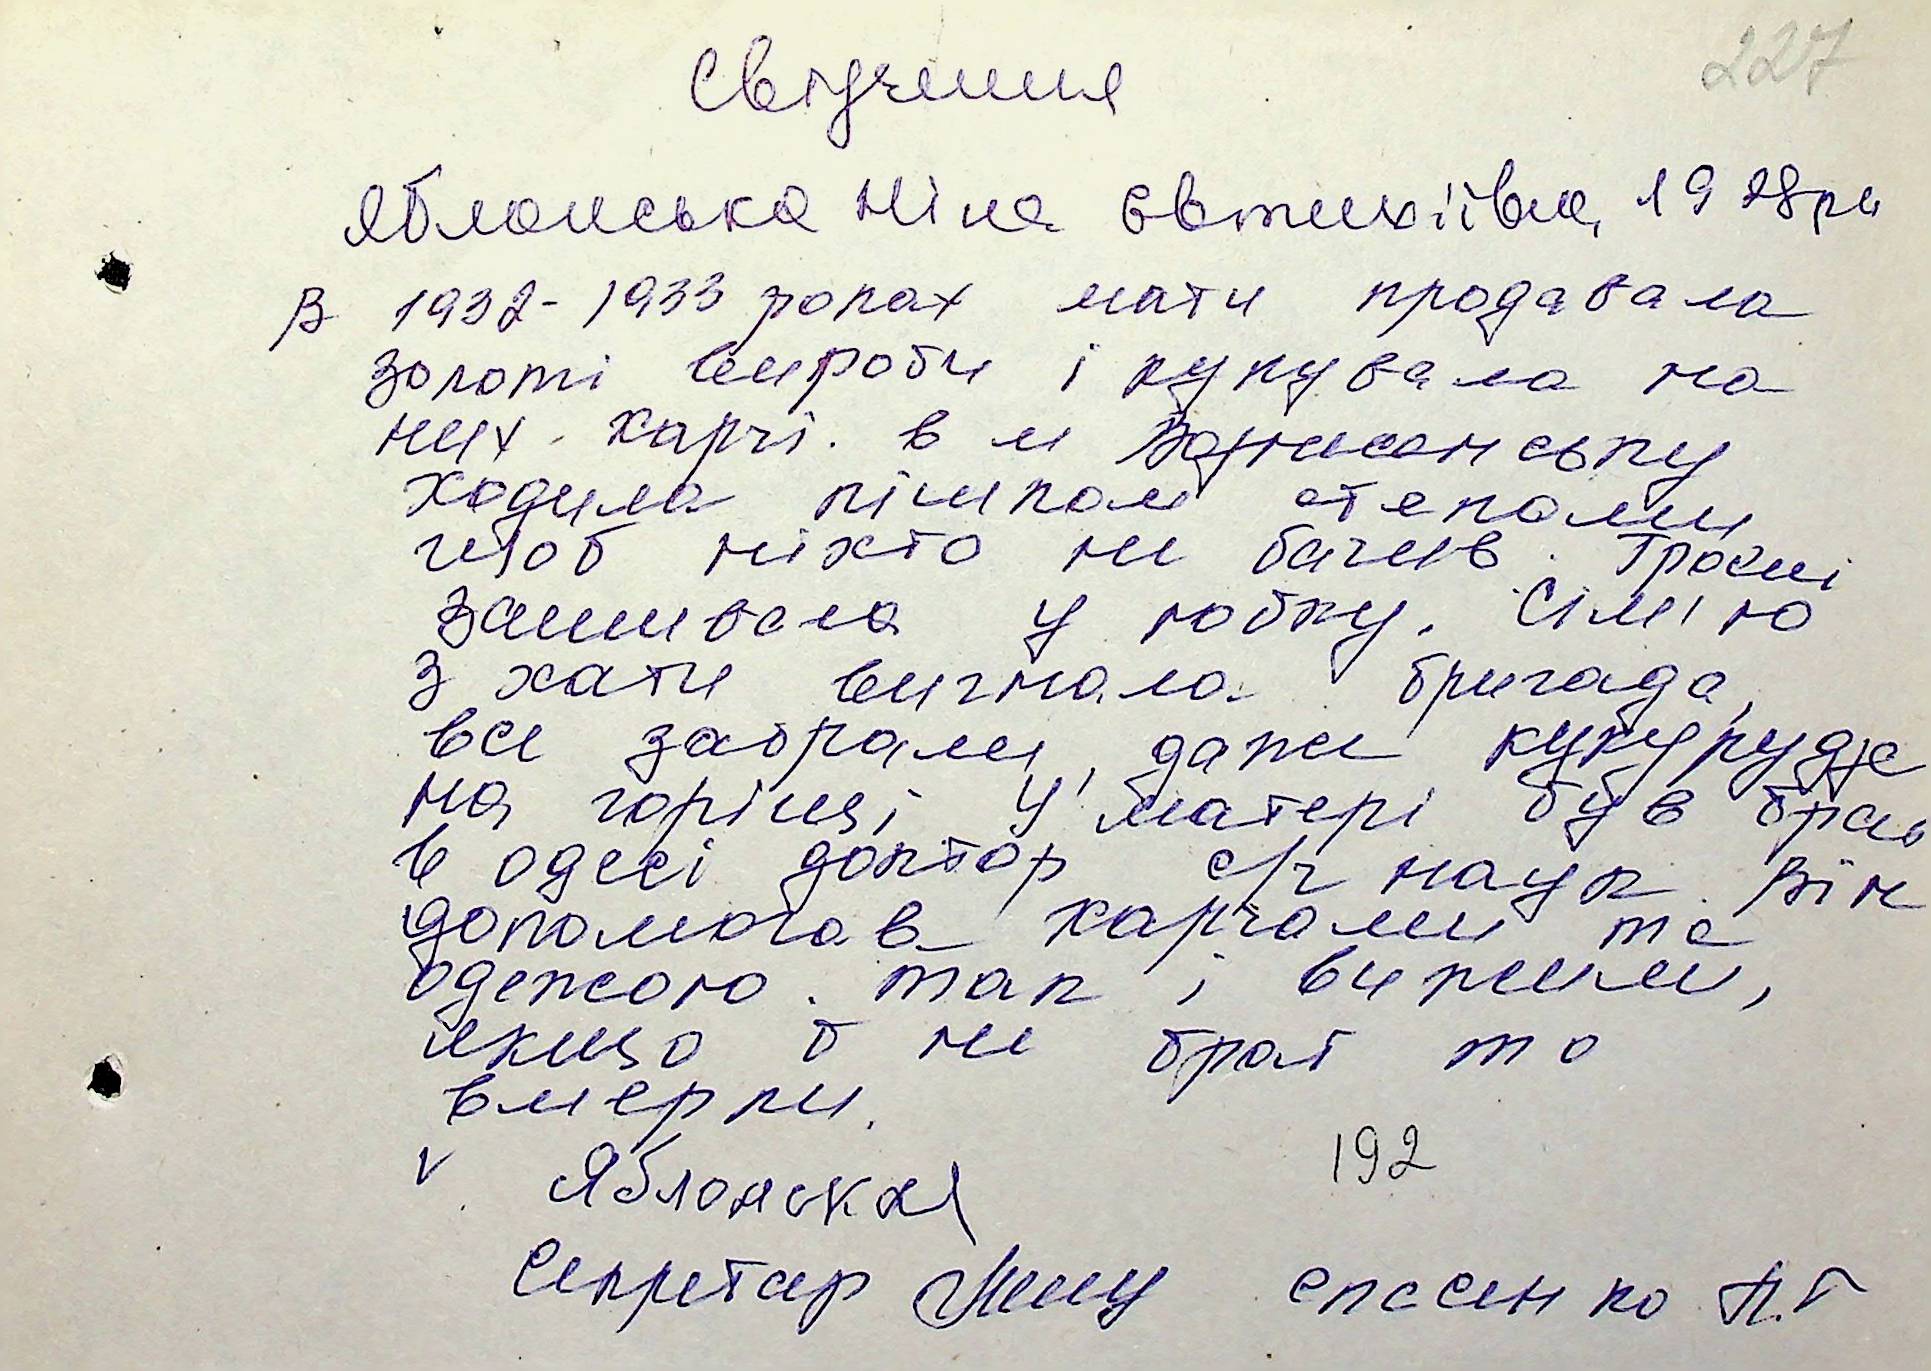 227
Свідчення
Яблонська Ніна Євтихіївна, 1928 рн
В 1932-1933 роках мати продавала
золоті вироби і купувала на
них харчі. в м Вознесенську
ходила пішком степами
щоб ніхто не бачив. Гроші
зашивала у юбку. Сім'ю
з хати вигнала бригада,
все забрали, даже кукурудзу
на горіщі. У матері був брат
в одесі доктор с/г наук. Він
допомогав харчами та
одежою. так і вижили,
якщо б не брат то
вмерли.
V Яблонская
192
Секретар Спасенко П.Г